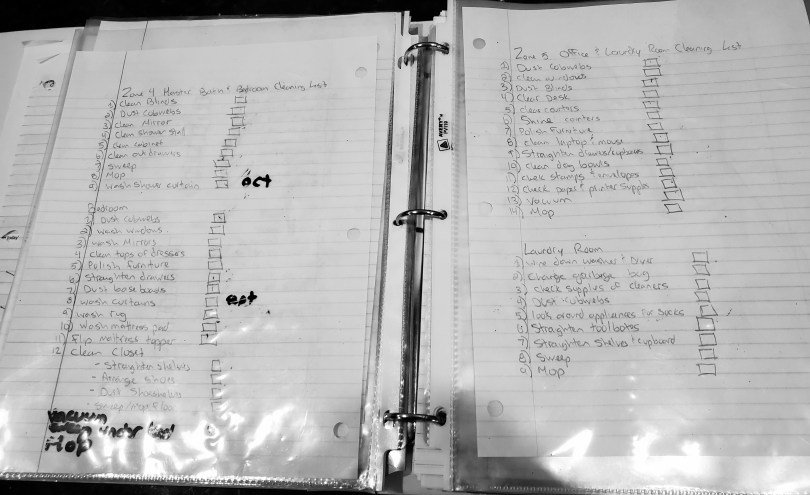 Zone 4 Master Bath & Bedroom Cleaning List
1) Clean Blinds
2) Dust Cobwebs
3) Clean Mirror
4) Clean Shower Stall
5) Clean cabinet
6) Clean out drawers
7) Sweep
8) Mop
9) Wash Shower curtain
oct
Bedroom
1) Dust Cobwebs
2) Wash windows
3) Wash Mirrors
4) Clean tops of dressers
5) Polish furniture
6) Straighten drawers
7) Dust baseboards
8) wash curtains
9) wash rug
10) Wash mattress pad
11) Flip mattress topper
12) Clean Closet
- Straighten shelves
- Arrange Shoes
- Dust
- Sweep/Mop Floor
Vacuum
under bed
Mop
AVERY
Zone 5 Office & Laundry Room Cleaning List
1) Dust Cobwebs
2) Clean windows
3) Dust Blinds
4) Clear Desk
5) Clear counters
6) Shine counters
7) Polish Furniture
8) Clean laptop & mouse
9) Straighten drawers/cupboards
10) Clean dog bowls
11) Check stamps & envelopes
12) Check paper & printer Supplies
13) Vacuum
14) Mop
Laundry Room
1) Wipe down washer & Dryer
2) Change garbage bag
3) Check supplies of cleaners
4) Dust cobwebs
5) look around appliances for socks
6) Straighten toolboxes
7) Straighten Shelves & cupboard
8) Sweep
9) Mop